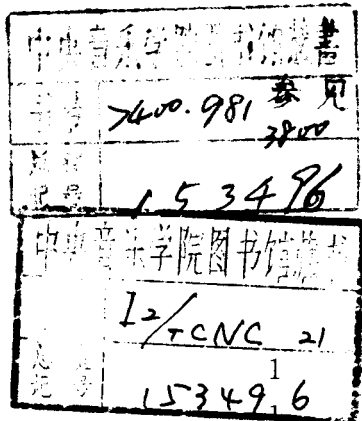 中央音乐学院图书馆藏書
书号 >400.981 参見
3800
总登
记号 153496
中央音乐学院图书馆藏书
I2/TCNC 21
总登
记号 1
153496